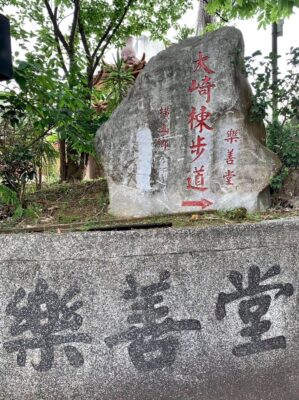 大崎棟步道
樂善堂
樂善堂